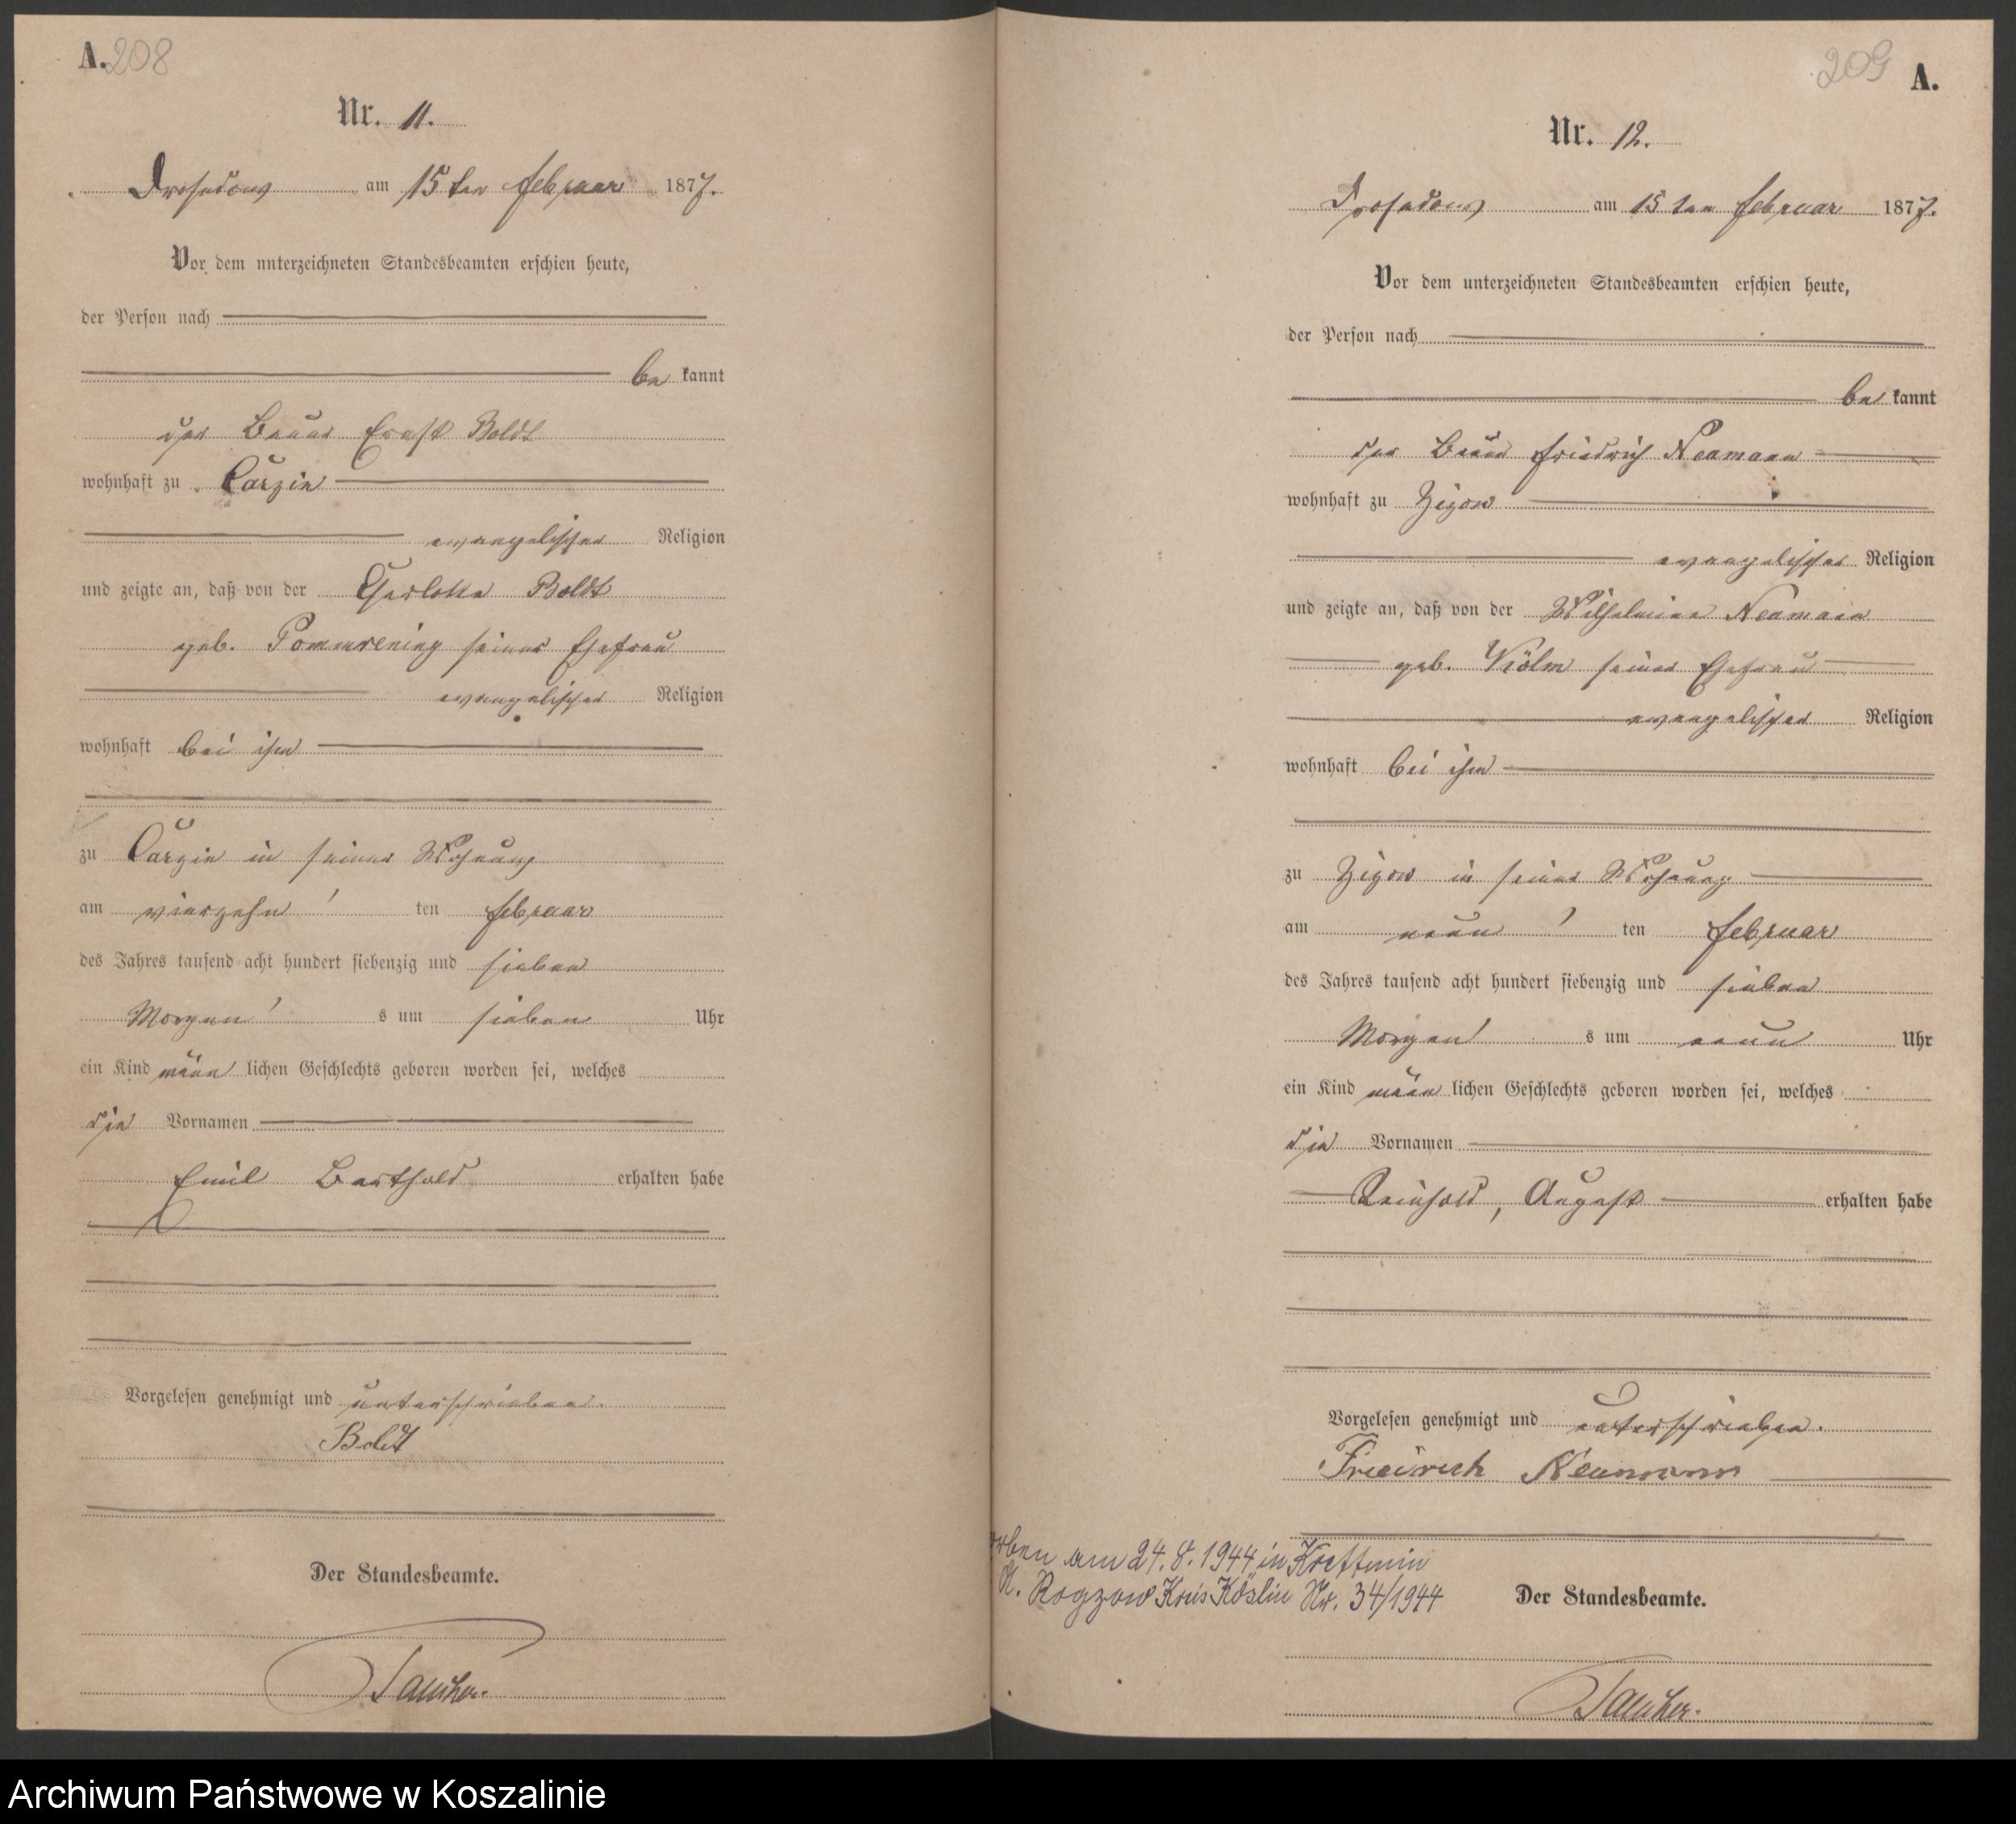 A. 208
Nr. 11.
Drosedow am 15ten Februar 1877.
Vor dem unterzeichneten Standesbeamten erschien heute,
der Person nach
be kannt
der Bauer Ernst Boldt
wohnhaft zu Carzin
evangelischer Religion
und zeigte an, daß von der Charlotte Boldt
geb. Pommerening seiner Ehefrau
evangelischer Religion
wohnhaft bei ihm
zu Carzin in seiner Wohnung
am vierzehn ten Februar
des Jahres tausend acht hundert siebenzig und sieben
Morgen s um sieben Uhr
ein Kind männ lichen Geschlechts geboren worden sei, welches
die Vornamen
Emil Berthold erhalten habe
Vorgelesen genehmigt und unterschrieben.
Boldt
Der Standesbeamte.
209 A.
Nr. 12.
Drosedow am 15ten Februar 1877.
Vor dem unterzeichneten Standesbeamten erschien heute,
der Person nach
be kannt
der Bauer Friedrich Neumann
wohnhaft zu Zizow
evangelischer Religion
und zeigte an, daß von der Wilhelmine Neumann
geb. Kölm seiner Ehefrau
evangelischer Religion
wohnhaft bei ihm
zu Zizow in seiner Wohnung
am neun ten Februar
des Jahres tausend acht hundert siebenzig und sieben
Morgen s um neun Uhr
ein Kind männ lichen Geschlechts geboren worden sei, welches
die Vornamen
Reinhold, August erhalten habe
Vorgelesen genehmigt und unterschrieben.
Friedrich Neumann
orben am 24.8.1944 in Kreftmin
A. Rogzow Kreis Köslin Nr. 34/1944
Der Standesbeamte.
Archiwum Państwowe w Koszalinie